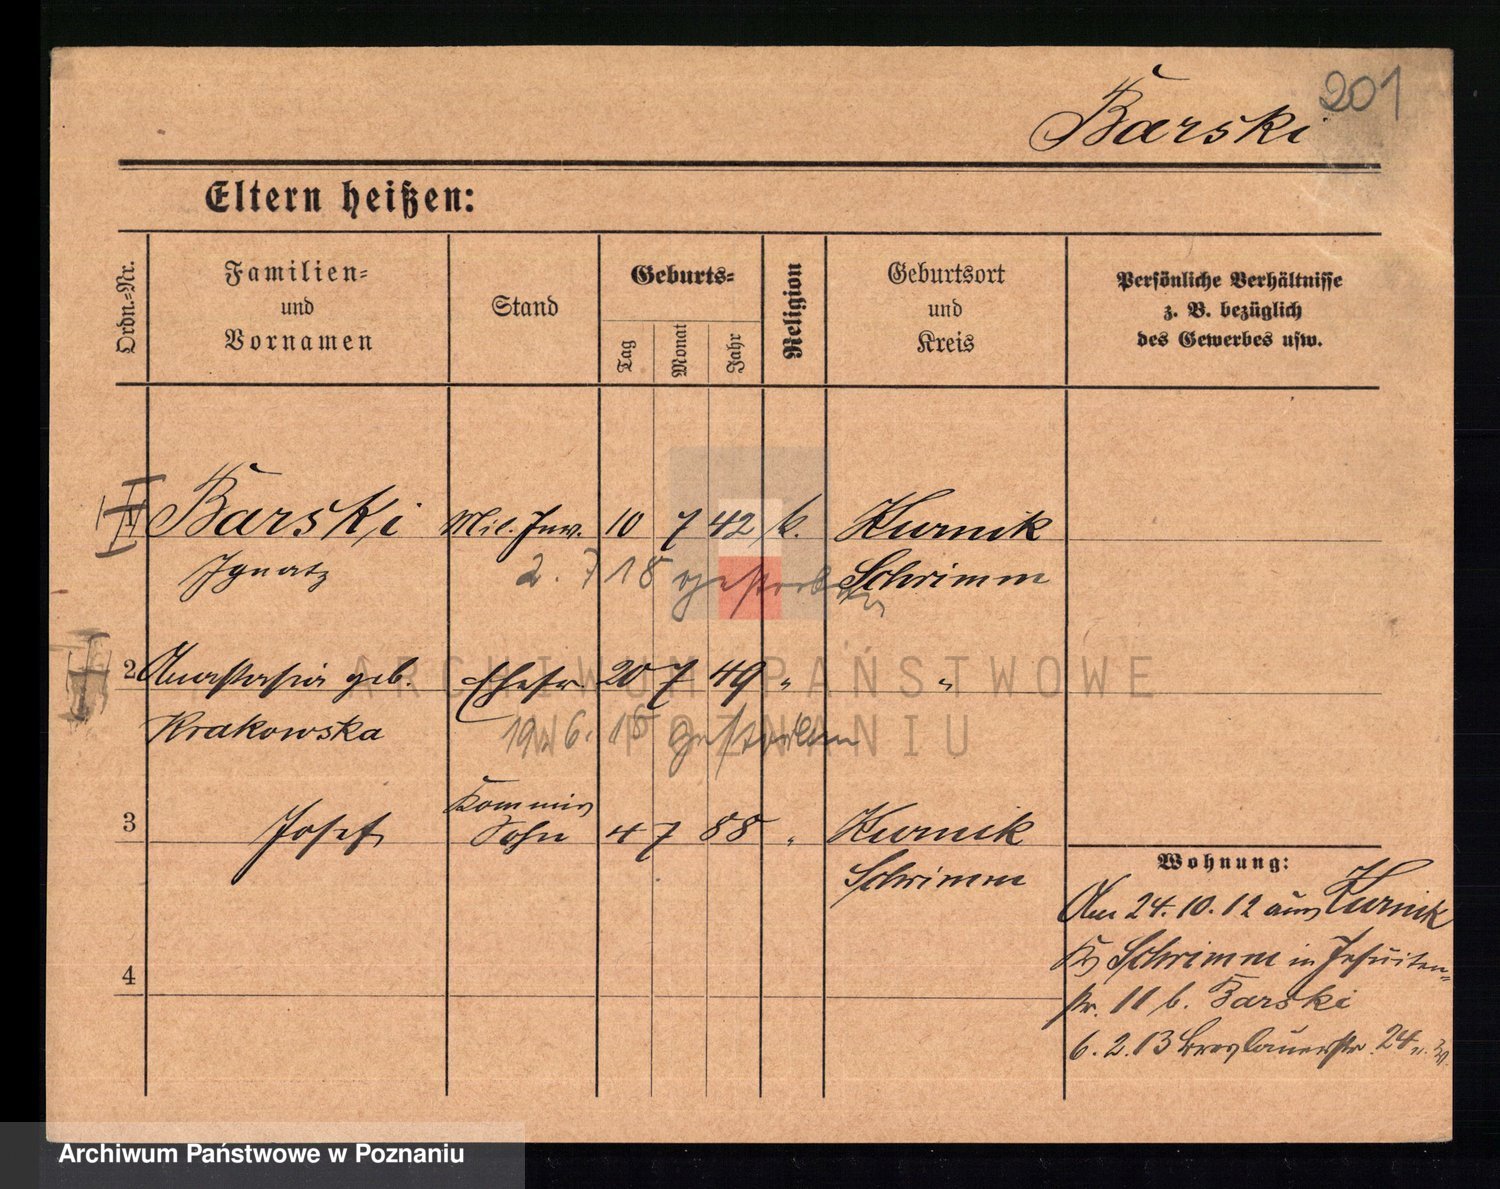 201
Barski
Eltern heißen:
Ordn.-Nr.
Familien-
und
Vornamen
Stand
Geburts-
Tag
Monat
Jahr
Religion
Geburtsort
und
Kreis
Persönliche Verhältnisse
z. B. bezüglich
des Gewerbes usw.
1 Barski Mil. Inv. 10 7 42 k. Kurnik
Ignatz 2. 7 18 gestorben Schrimm
2 Anastasia geb. Ehefr. 20 7 49 " "
Krakowska 19. 6. gestorben
Kommis
3 Josef Sohn 4 7 88 " Kurnik
Schrimm
4
Wohnung:
Am 24.10.12 aus Kurnik
Kr Schrimm in Jesuiten-
str. 11 b. Barski
6.2.13 Breslauerstr. 24
ARCHIWUM PAŃSTWOWE
W POZNANIU
Archiwum Państwowe w Poznaniu